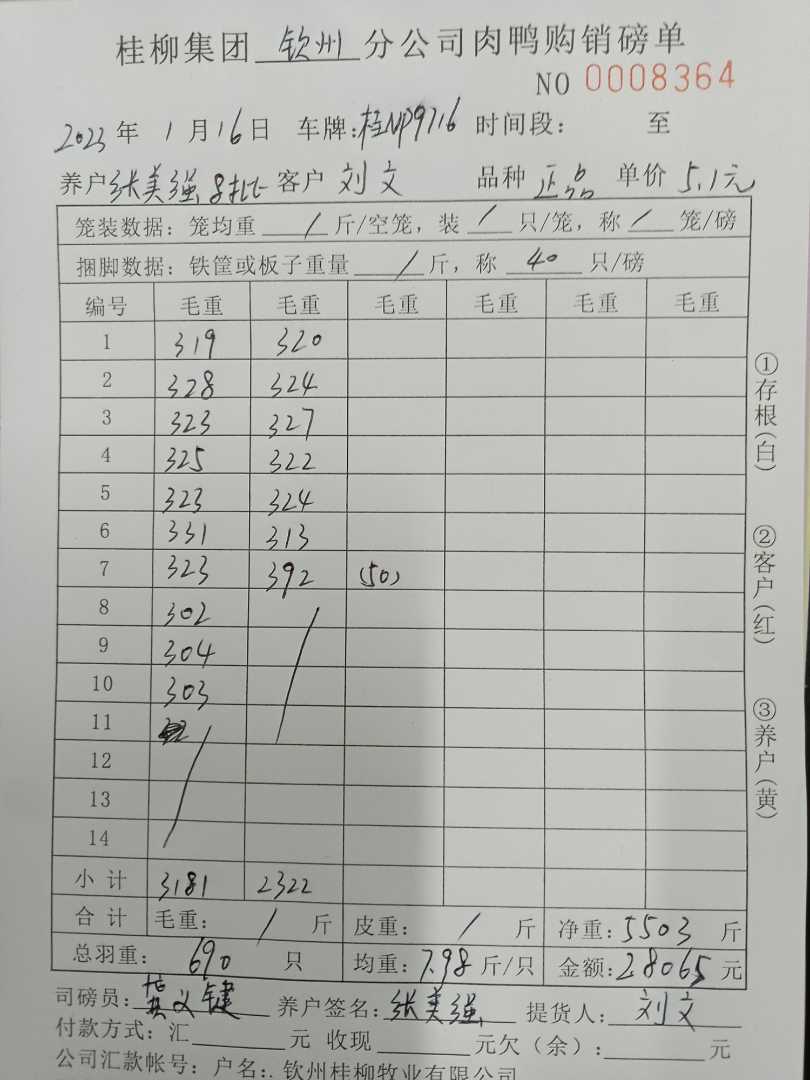 桂柳集团 钦州 分公司肉鸭购销磅单
NO 0008364
2023 年 1 月 16 日 车牌: 桂NP9716 时间段: 至
养户 张美强 8批 客户 刘文 品种 正品 单价 5.1元
笼装数据: 笼均重 / 斤/空笼, 装 / 只/笼, 称 / 笼/磅
捆脚数据: 铁筐或板子重量 / 斤, 称 40 只/磅
编号 毛重 毛重 毛重 毛重 毛重 毛重
1 319 320
2 328 324
3 323 327
4 325 322
5 323 324
6 331 313
7 323 392 (50)
8 302
9 304
10 303
11
12
13
14
小计 3181 2322
合计 毛重: / 斤 皮重: / 斤 净重: 5503 斤
总羽重: 690 只 均重: 7.98 斤/只 金额: 28065 元
司磅员: 黄义键 养户签名: 张美强 提货人: 刘文
付款方式: 汇 元 收现 元欠(余): 元
公司汇款帐号: 户名:. 钦州桂柳牧业有限公司
①存根(白)
②客户(红)
③养户(黄)